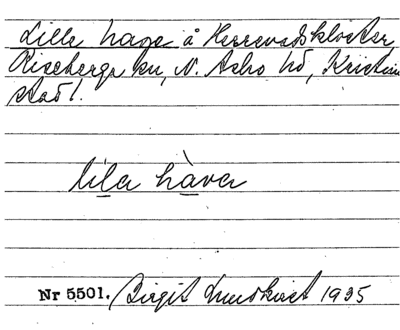 Lille hage å Herrevadskloster,
Riseberga sn, N. Åsbo hd, Kristian
stad l.
lila hàva
Nr 5501. Birgit Lundkvist 1935